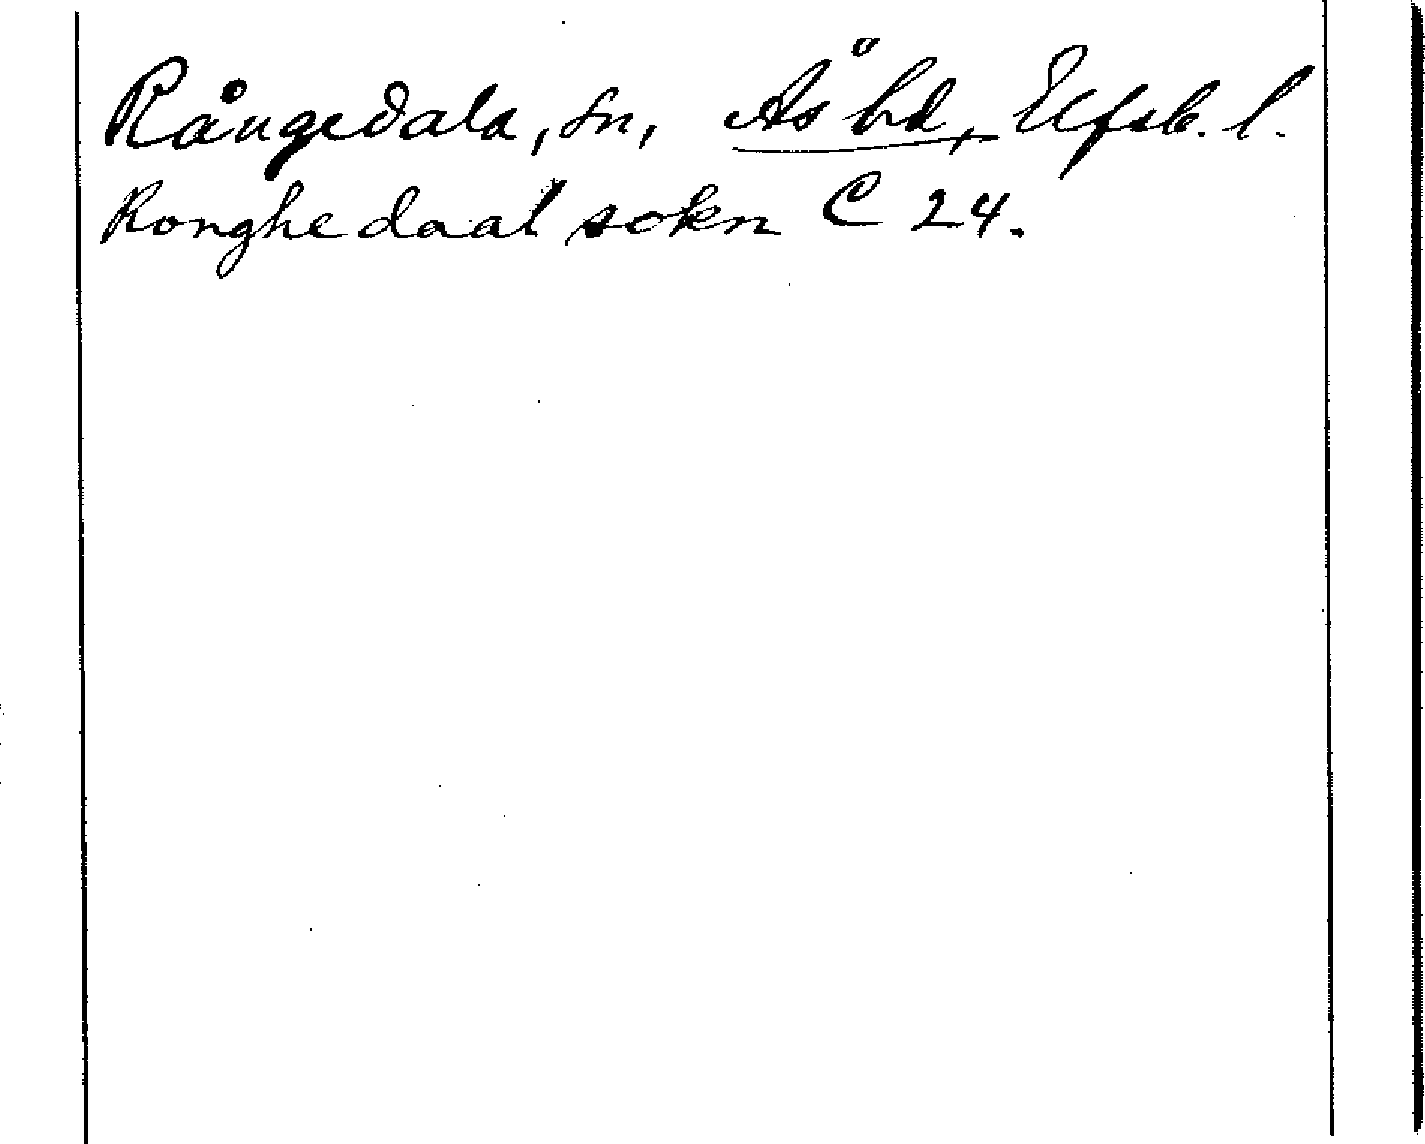 Rångedala, sn, Ås hd, Elfsb. l.
Ronghedaal sokn C 24.